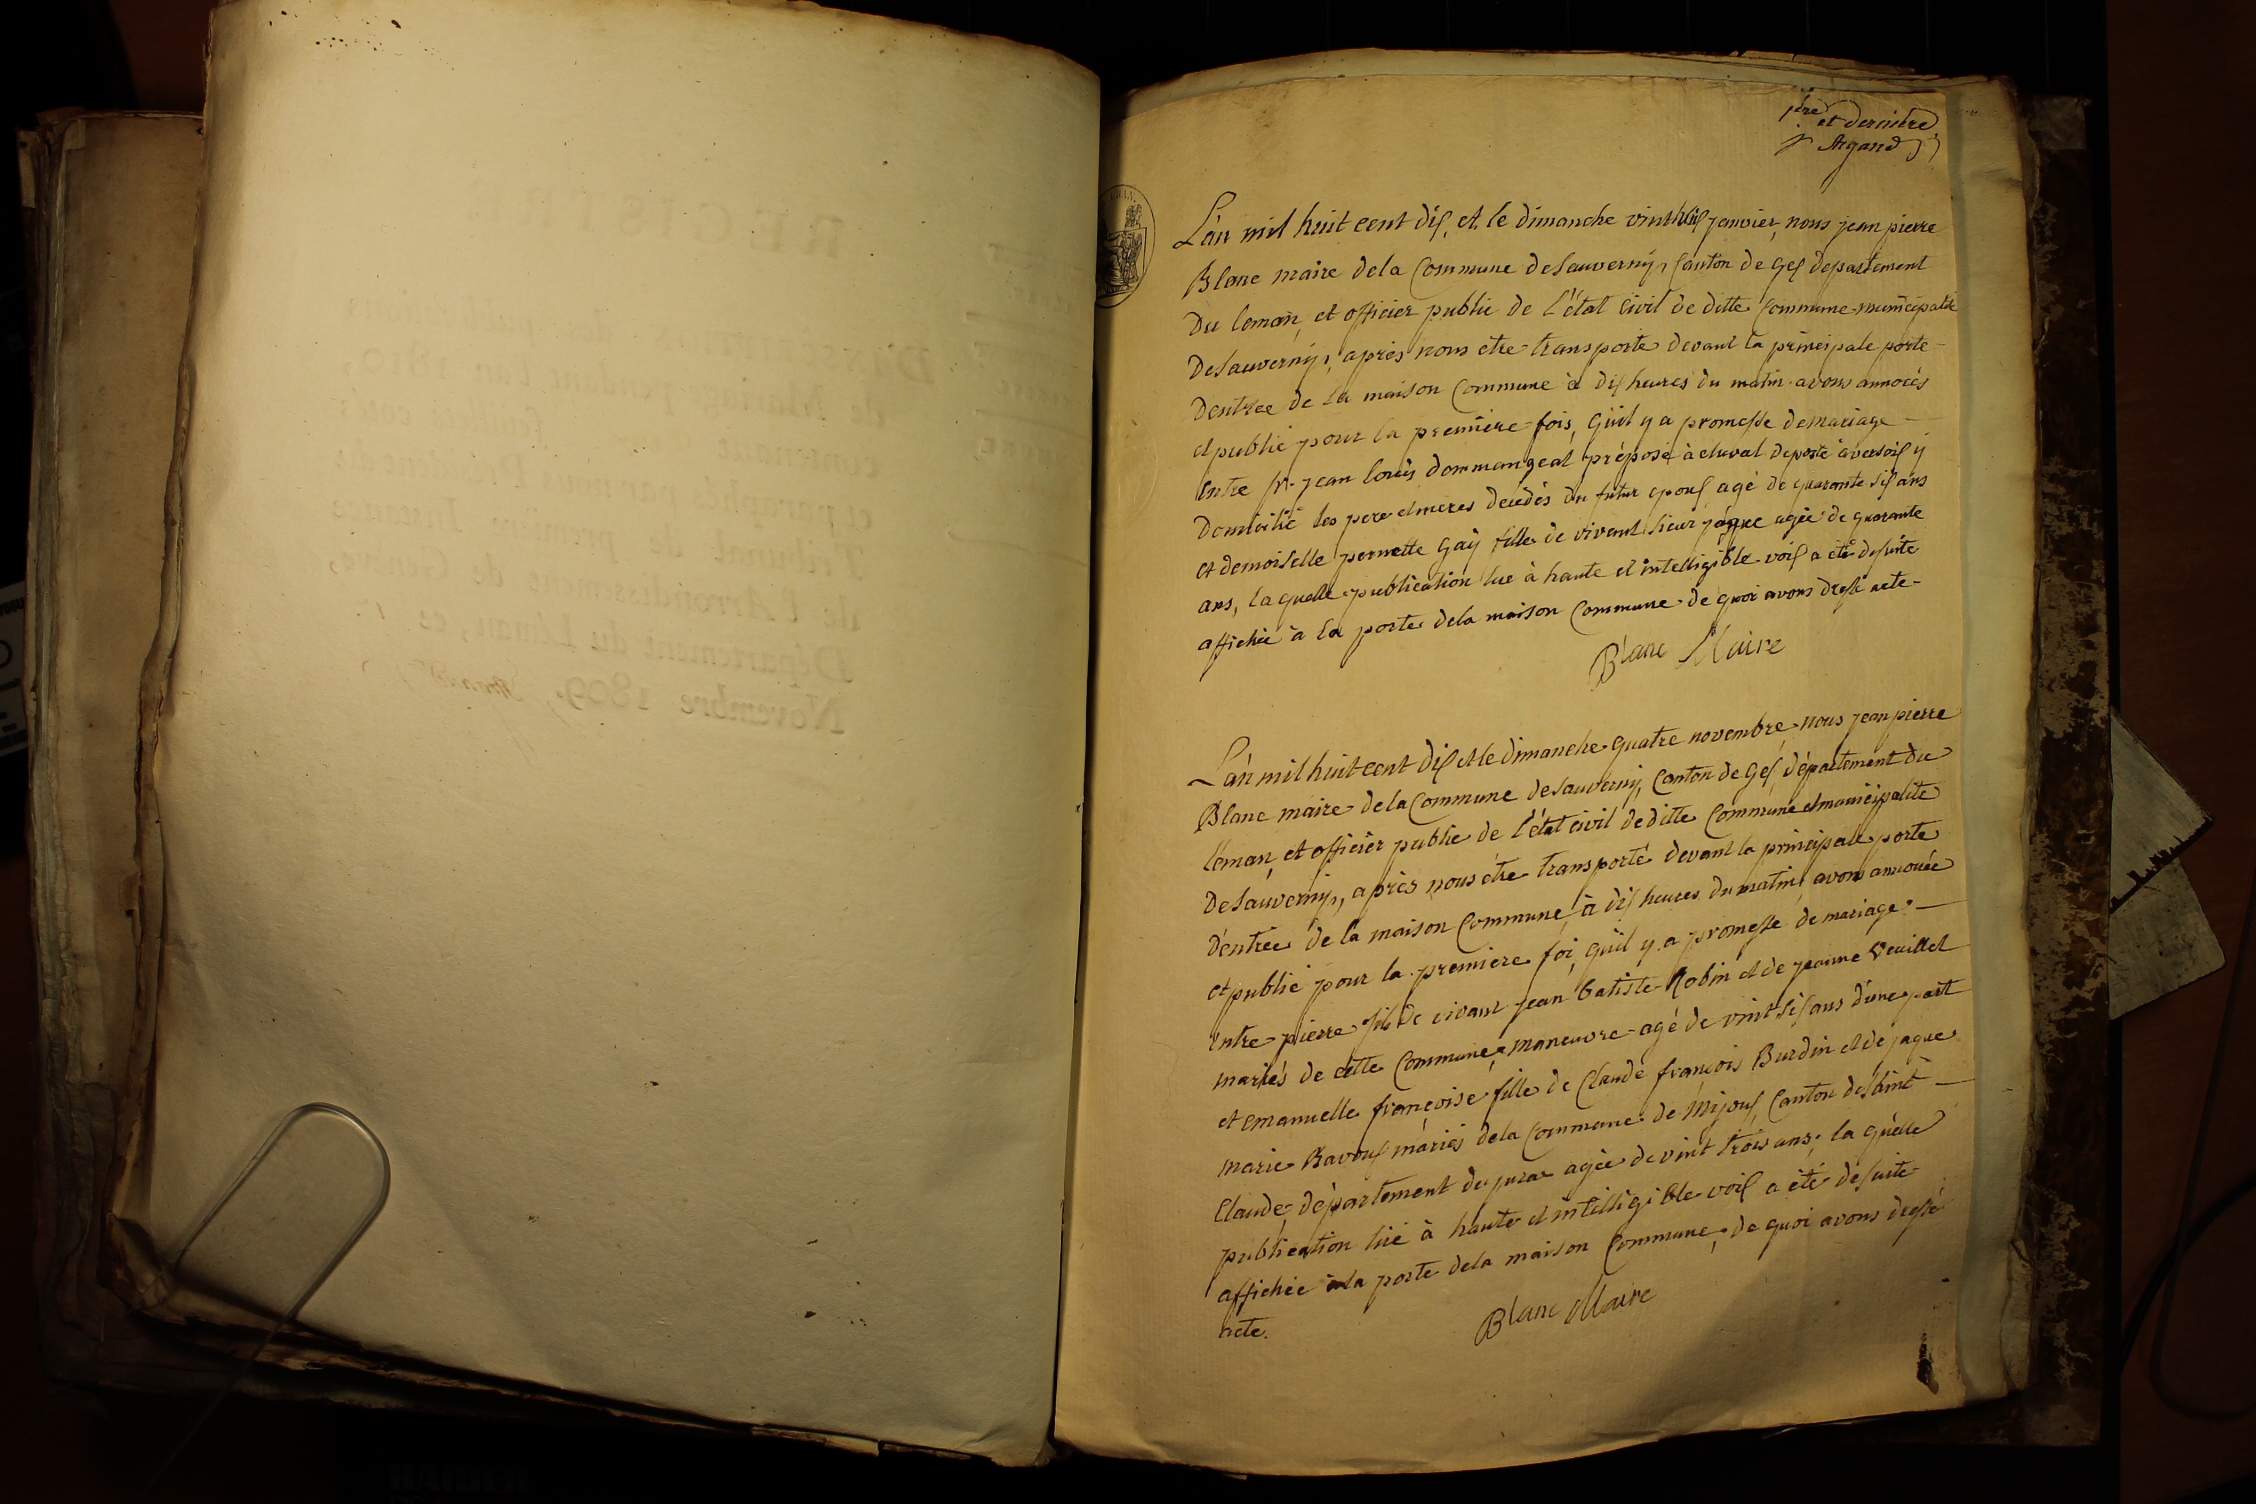 1ère
et dernière
Argand
L'an mil huit cent dix, et le dimanche vinthuit janvier, nous jean pierre
Blanc maire dela Commune de Sauverny, Canton de Gex departement
Du leman, et officier public de L'état Civil de ditte Commune municipalité
De Sauverny, après nous etre transporte devant la principale porte
Dentree de la maison Commune à dix heures du matin avons annocés
et publié pour la première fois, quil y a promesse de mariage
Entre sr. jean louis dommangeat préposé à cheval deposte à versoix y
Domicilié les pere et meres décédés du futur epoux agé de quarante six ans
et demoiselle pernette Gay fille de vivant sieur jaque agée de quarante
ans, laquelle publication lue à haute et intelligible voix a été desuite
affichée à la porte dela maison Commune de quoi avons dressé acte
Blanc Maire
L'an mil huit cent dix et le dimanche quatre novembre nous jean pierre
Blanc maire dela Commune de Sauverny, Canton de Gex département du
léman, et officier public de l'état civil de ditte Commune et municipalité
De Sauverny, après nous étre transporté devant la principale porte
D'entrée de la maison Commune, à dix heures du matin, avons annoncée
et publié pour la première foi, qu'il y a promesse de mariage
Entre pierre fils de vivant jean batiste Robin et de jeanne Veuillet
mariés de cette Commune, maneuvre agé de vint six ans d'une part
et emanuelle françoise fille de Claude françois Burdin et de jaque
marie Bavoux mariés dela Commune de Mijoux Canton de Saint
Claude, département du jura agée de vint trois ans, la quelle
publication lue à haute et intelligible voix a été desuite
affichée à la porte dela maison Commune, de quoi avons dressé
acte.
Blanc Maire
REGISTRE
Novembre 1809,